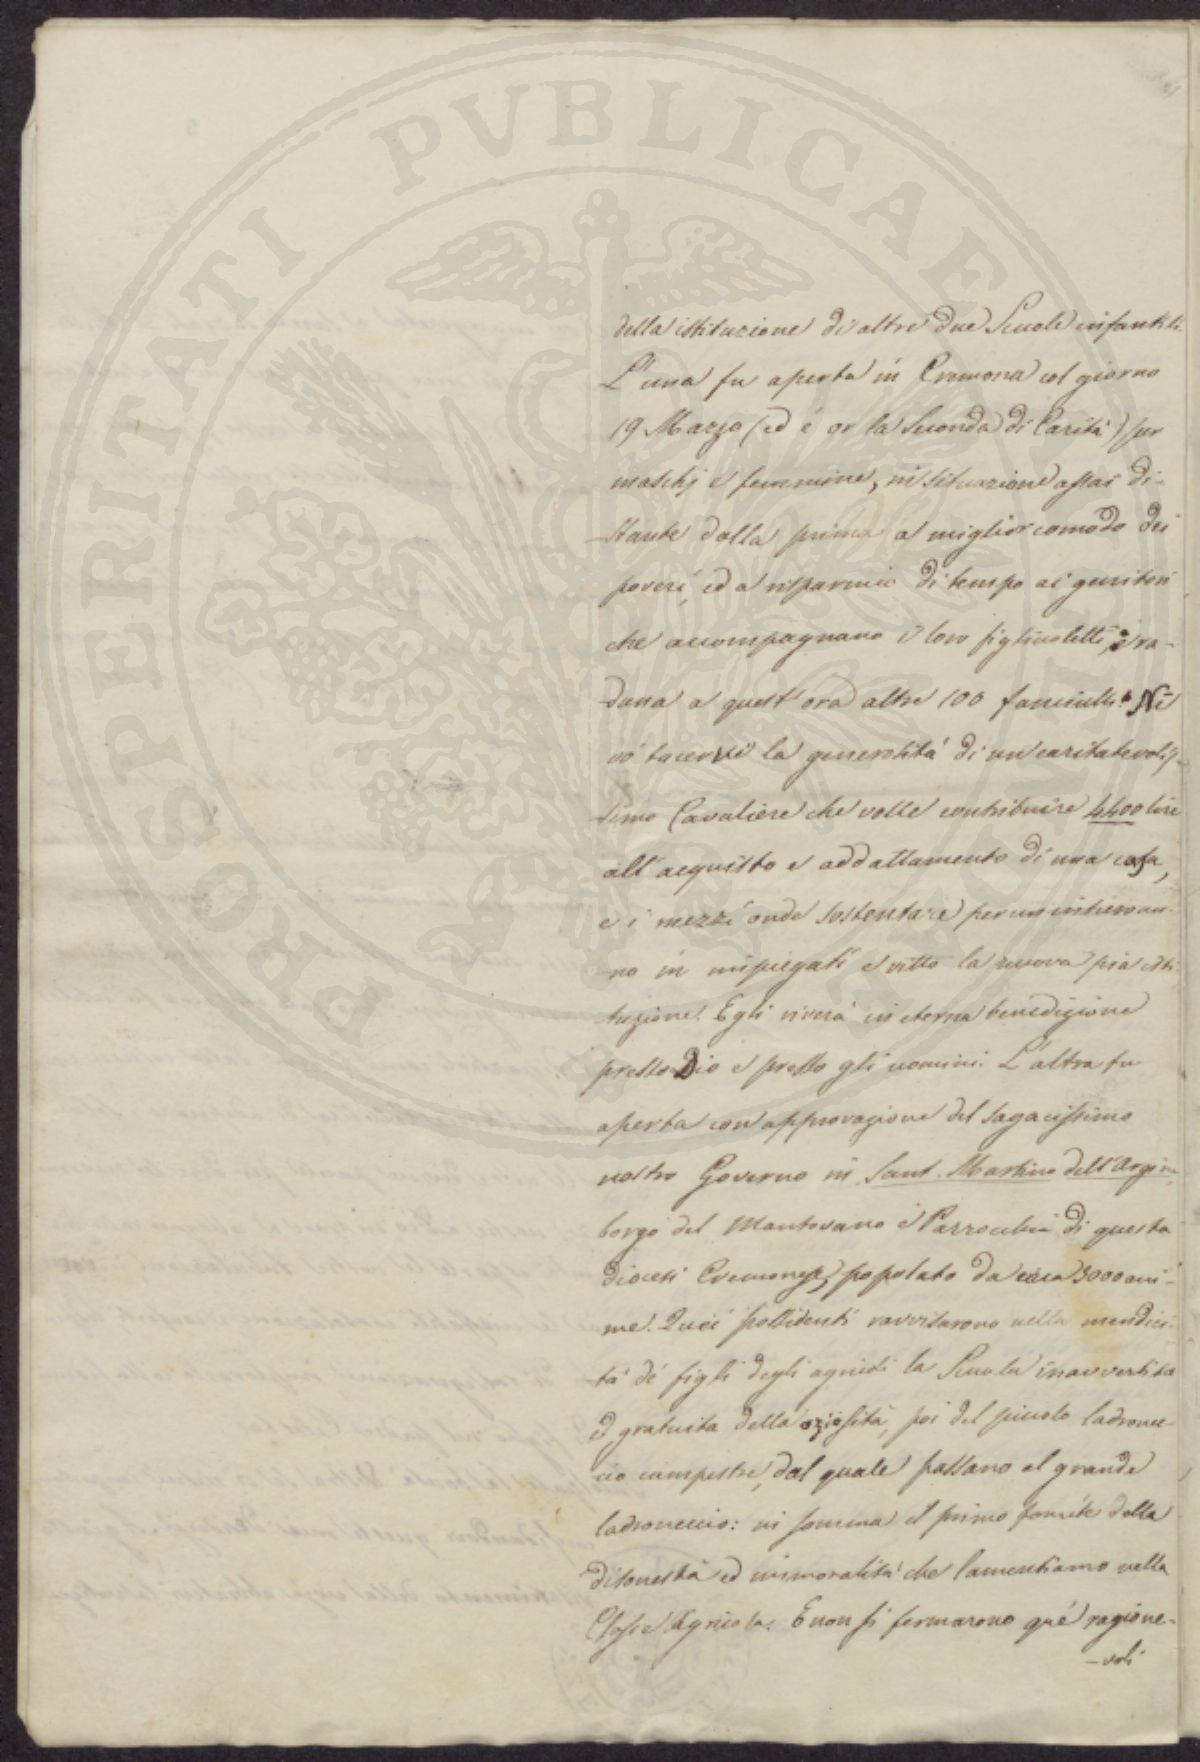 PROSPERITATI PVBLICAE
della istituzione di altre due Scuole infantili.
L'una fu aperta in Cremona col giorno
19 Marzo (ed è or la Seconda di Carità) per
maschj e femmine, in situazione assai di-
stante dalla prima a miglior comodo dei
poveri, ed a risparmio di tempo ai genitori
che accompagnano i loro figliuoletti, e ra-
duna a quest'ora altre 100 fanciulli. Nè
vò tacervi la generosità di un caritatevolis-
simo Cavaliere che volle contribuire 4400 lire
all'acquisto e addattamento di una casa,
e i mezzi onde sostentare per un intiero an-
no in impiegati e vitto la nuova pia isti-
tuzione. Egli vivrà in eterna benedizione
presso Dio e presso gli uomini. L'altra fu
aperta con approvazione del sagacissimo
nostro Governo in Sant. Martino dell'Argine,
borgo del Mantovano e Parrocchia di questa
diocesi Cremonese, popolato da circa 3000 ani-
me. Quei possidenti ravvisarono nella mendici-
tà de' figli degli agricoli la Scuola inavvertita
e gratuita della oziosità, poi del piccolo ladronec-
cio campestre, dal quale passano al grande
ladroneccio: in somma il primo fomite della
disonestà ed immoralità che lamentiamo nella
Classe Agricola. E non si fermarono quei ragione-
-voli